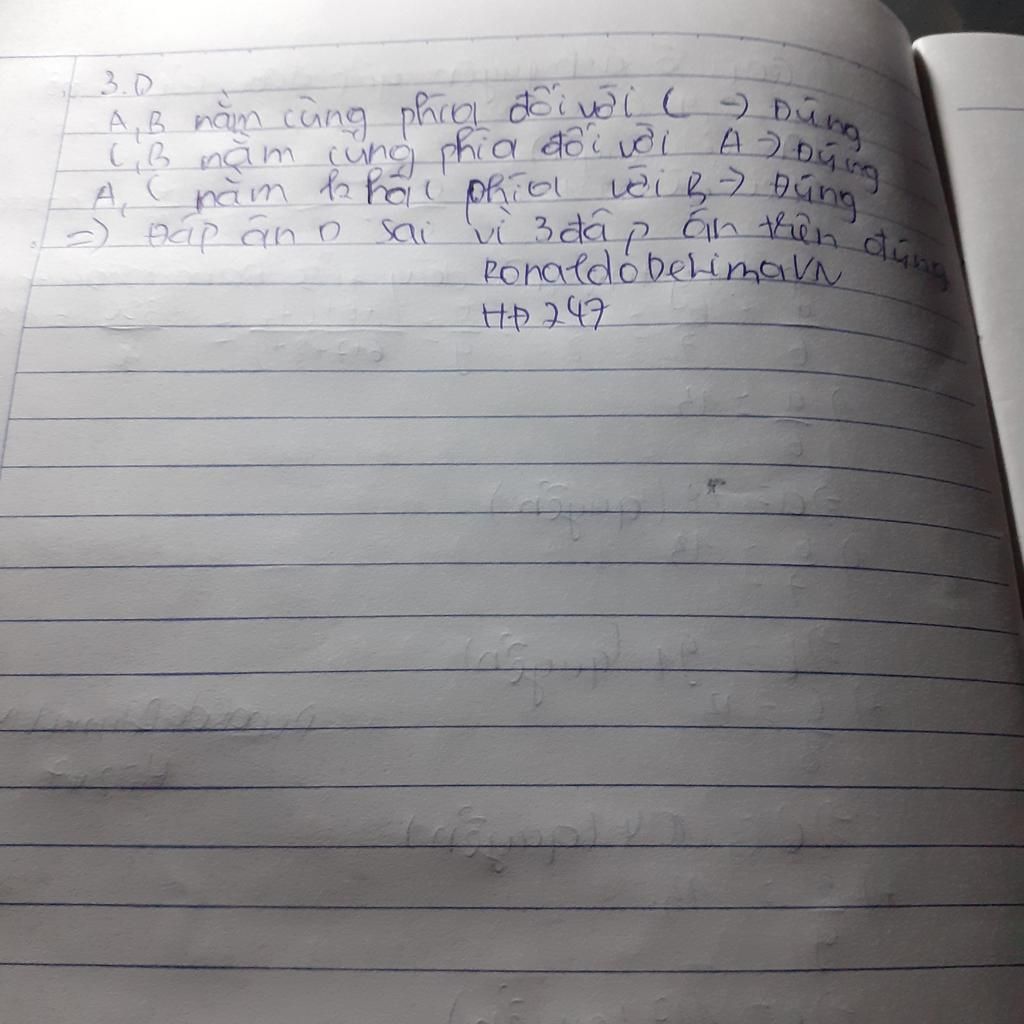 3.D
A,B nằm cùng phía đối với C => Đúng
C,B nằm cùng phía đối với A => Đúng
A, C nằm khác phía với B => Đúng
=> Đáp án D sai vì 3 đáp án trên đúng
RonaldoDeLimaVN
HĐ247